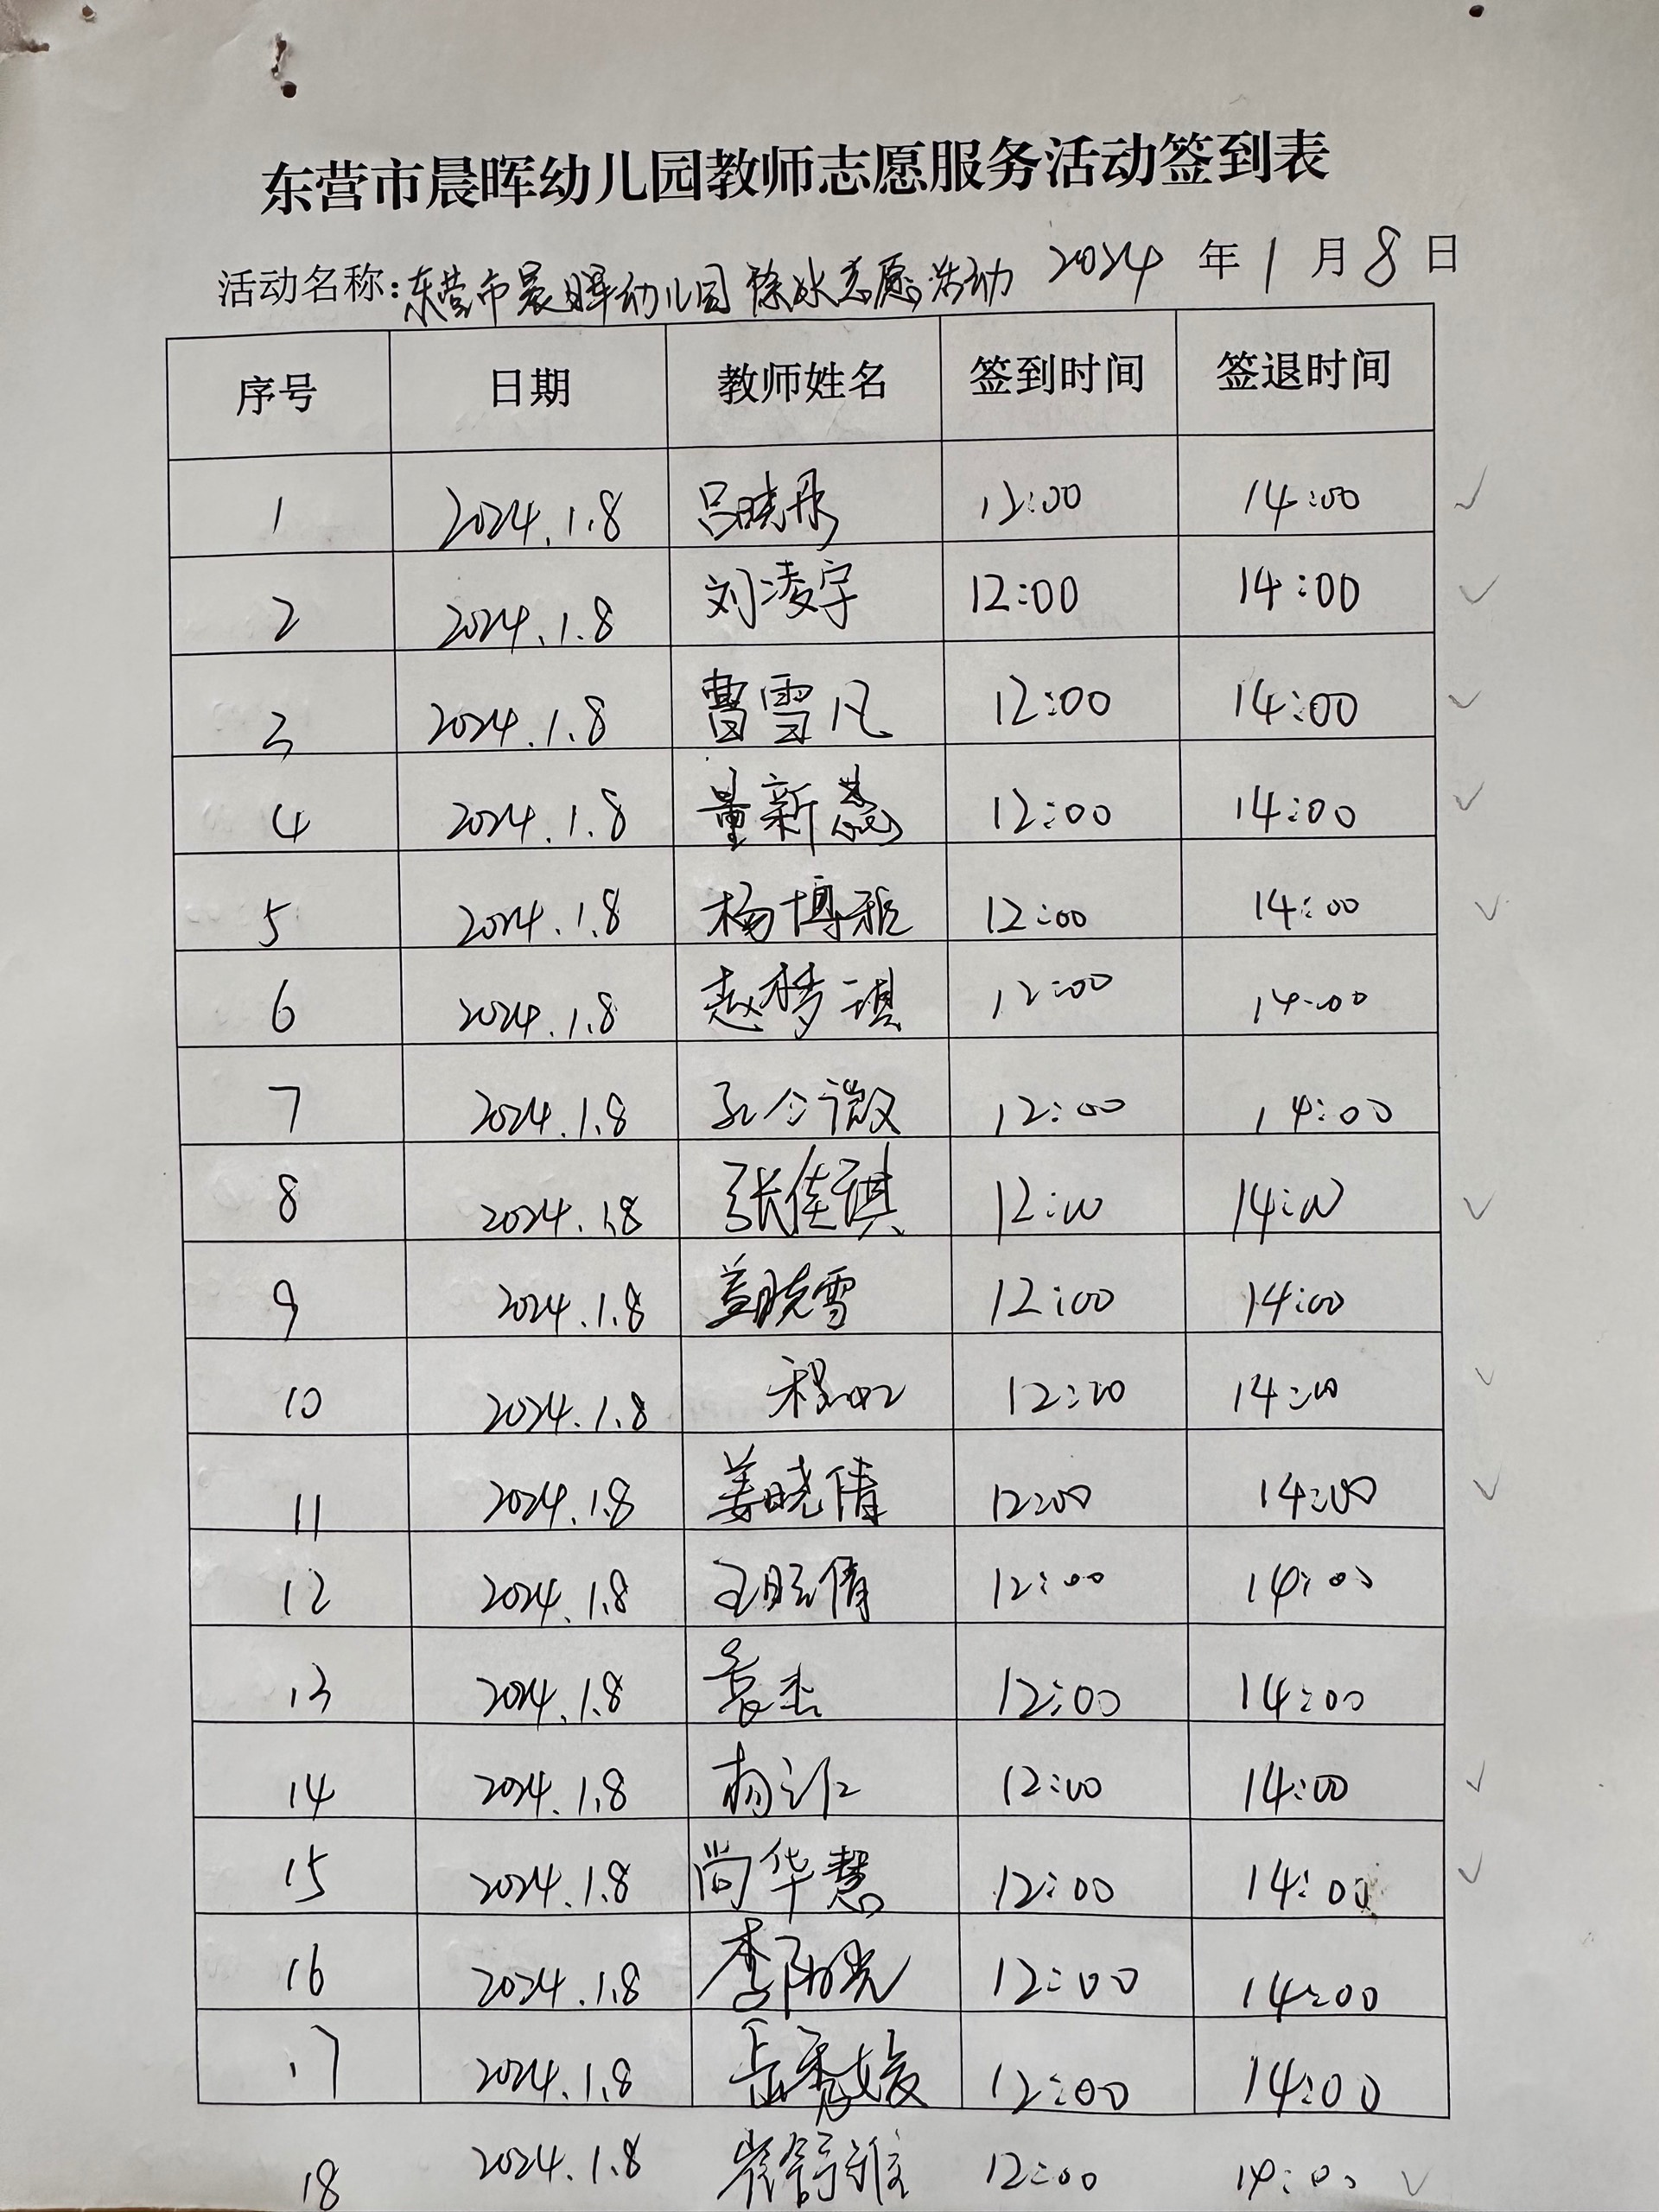 东营市晨晖幼儿园教师志愿服务活动签到表
活动名称:东营市晨晖幼儿园除冰志愿活动 2024 年 1 月 8 日
序号 日期 教师姓名 签到时间 签退时间
1 2024.1.8 吕晓丹 12:00 14:00 ✓
2 2024.1.8 刘凌宇 12:00 14:00 ✓
3 2024.1.8 曹雪凡 12:00 14:00 ✓
4 2024.1.8 董新蕊 12:00 14:00 ✓
5 2024.1.8 杨博雅 12:00 14:00 ✓
6 2024.1.8 赵梦琪 12:00 14:00
7 2024.1.8 12:00 14:00
8 2024.1.8 张佳琪 12:00 14:00 ✓
9 2024.1.8 盖晓雪 12:00 14:00
10 2024.1.8 12:00 14:00 ✓
11 2024.1.8 姜晓倩 12:00 14:00 ✓
12 2024.1.8 12:00 14:00
13 2024.1.8 12:00 14:00
14 2024.1.8 12:00 14:00 ✓
15 2024.1.8 尚华慧 12:00 14:00 ✓
16 2024.1.8 李阳光 12:00 14:00
17 2024.1.8 岳秀媛 12:00 14:00
18 2024.1.8 崔舒雅 12:00 14:00 ✓